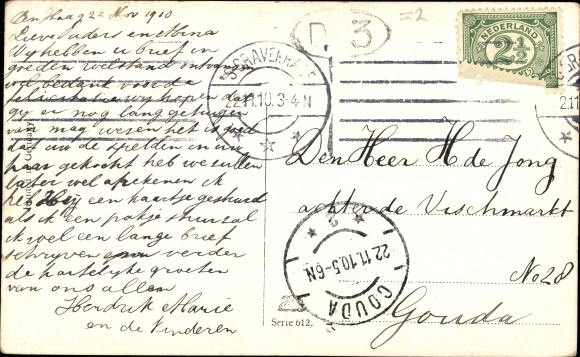 Den Haag 22 Nov 1910
Lieve ouders en Mina
Wij hebben u brief in
goeden welstand ontvangen
wel bedankt voor de
felicitatie wij hopen dat
gij er nog lang getuigen
van mag wezen het is goed
dat u de spelden in uw
haar gekocht heb we zullen
later wel afrekenen ik
heb Heij een kaartje gestuurd
als ik een pakje stuur zal
ik wel een lange brief
schrijven verder
de hartelijke groeten
van ons allen
Hendrik Marie
en de Kinderen
D. 3
=2
NEDERLAND
2½
'S-GRAVENHAGE
22.11.10.3-4 N
'S-GR
2.11
Den Heer H de Jong
achter de Vischmarkt
No 28
Gouda
2
22.11.10.5-6N
GOUDA
Serie 612.